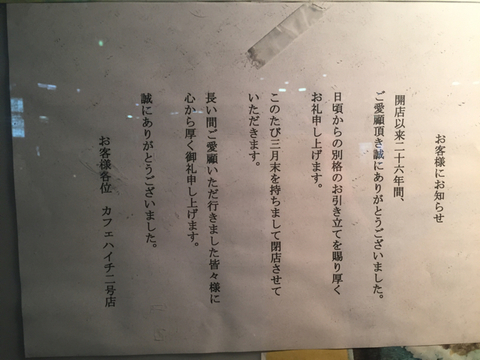 お客様にお知らせ
開店以来二十六年間、
ご愛顧頂き誠にありがとうございました。
日頃からの別格のお引き立てを賜り厚く
お礼申し上げます。
このたび三月末を持ちまして閉店させて
いただきます。
長い間ご愛顧いただ行きました皆々様に
心から厚く御礼申し上げます。
誠にありがとうございました。
お客様各位　カフェハイチ二号店